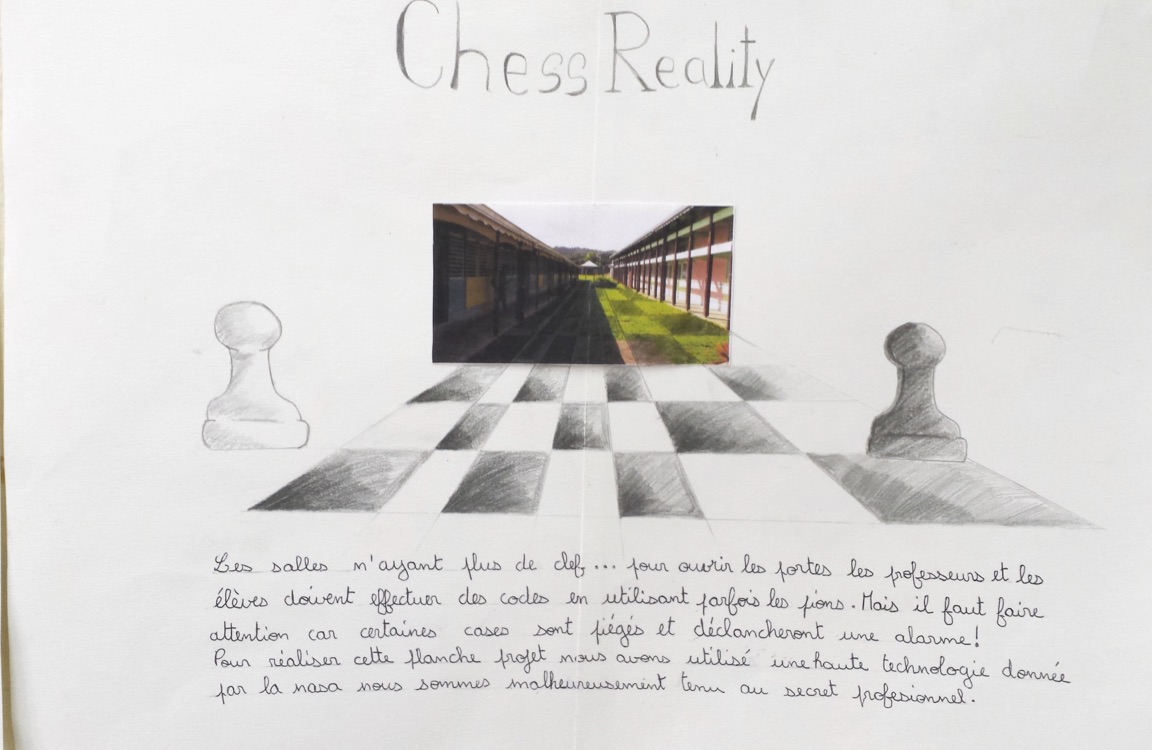 Chess Reality
Les salles n'ayant plus de clef... pour ouvrir les portes les professeurs et les
élèves doivent effectuer des codes en utilisant parfois les pions. Mais il faut faire
attention car certaines cases sont piégés et déclancheront une alarme!
Pour réaliser cette planche projet nous avons utilisé une haute technologie donnée
par la nasa nous sommes malheureusement tenu au secret profesionnel.